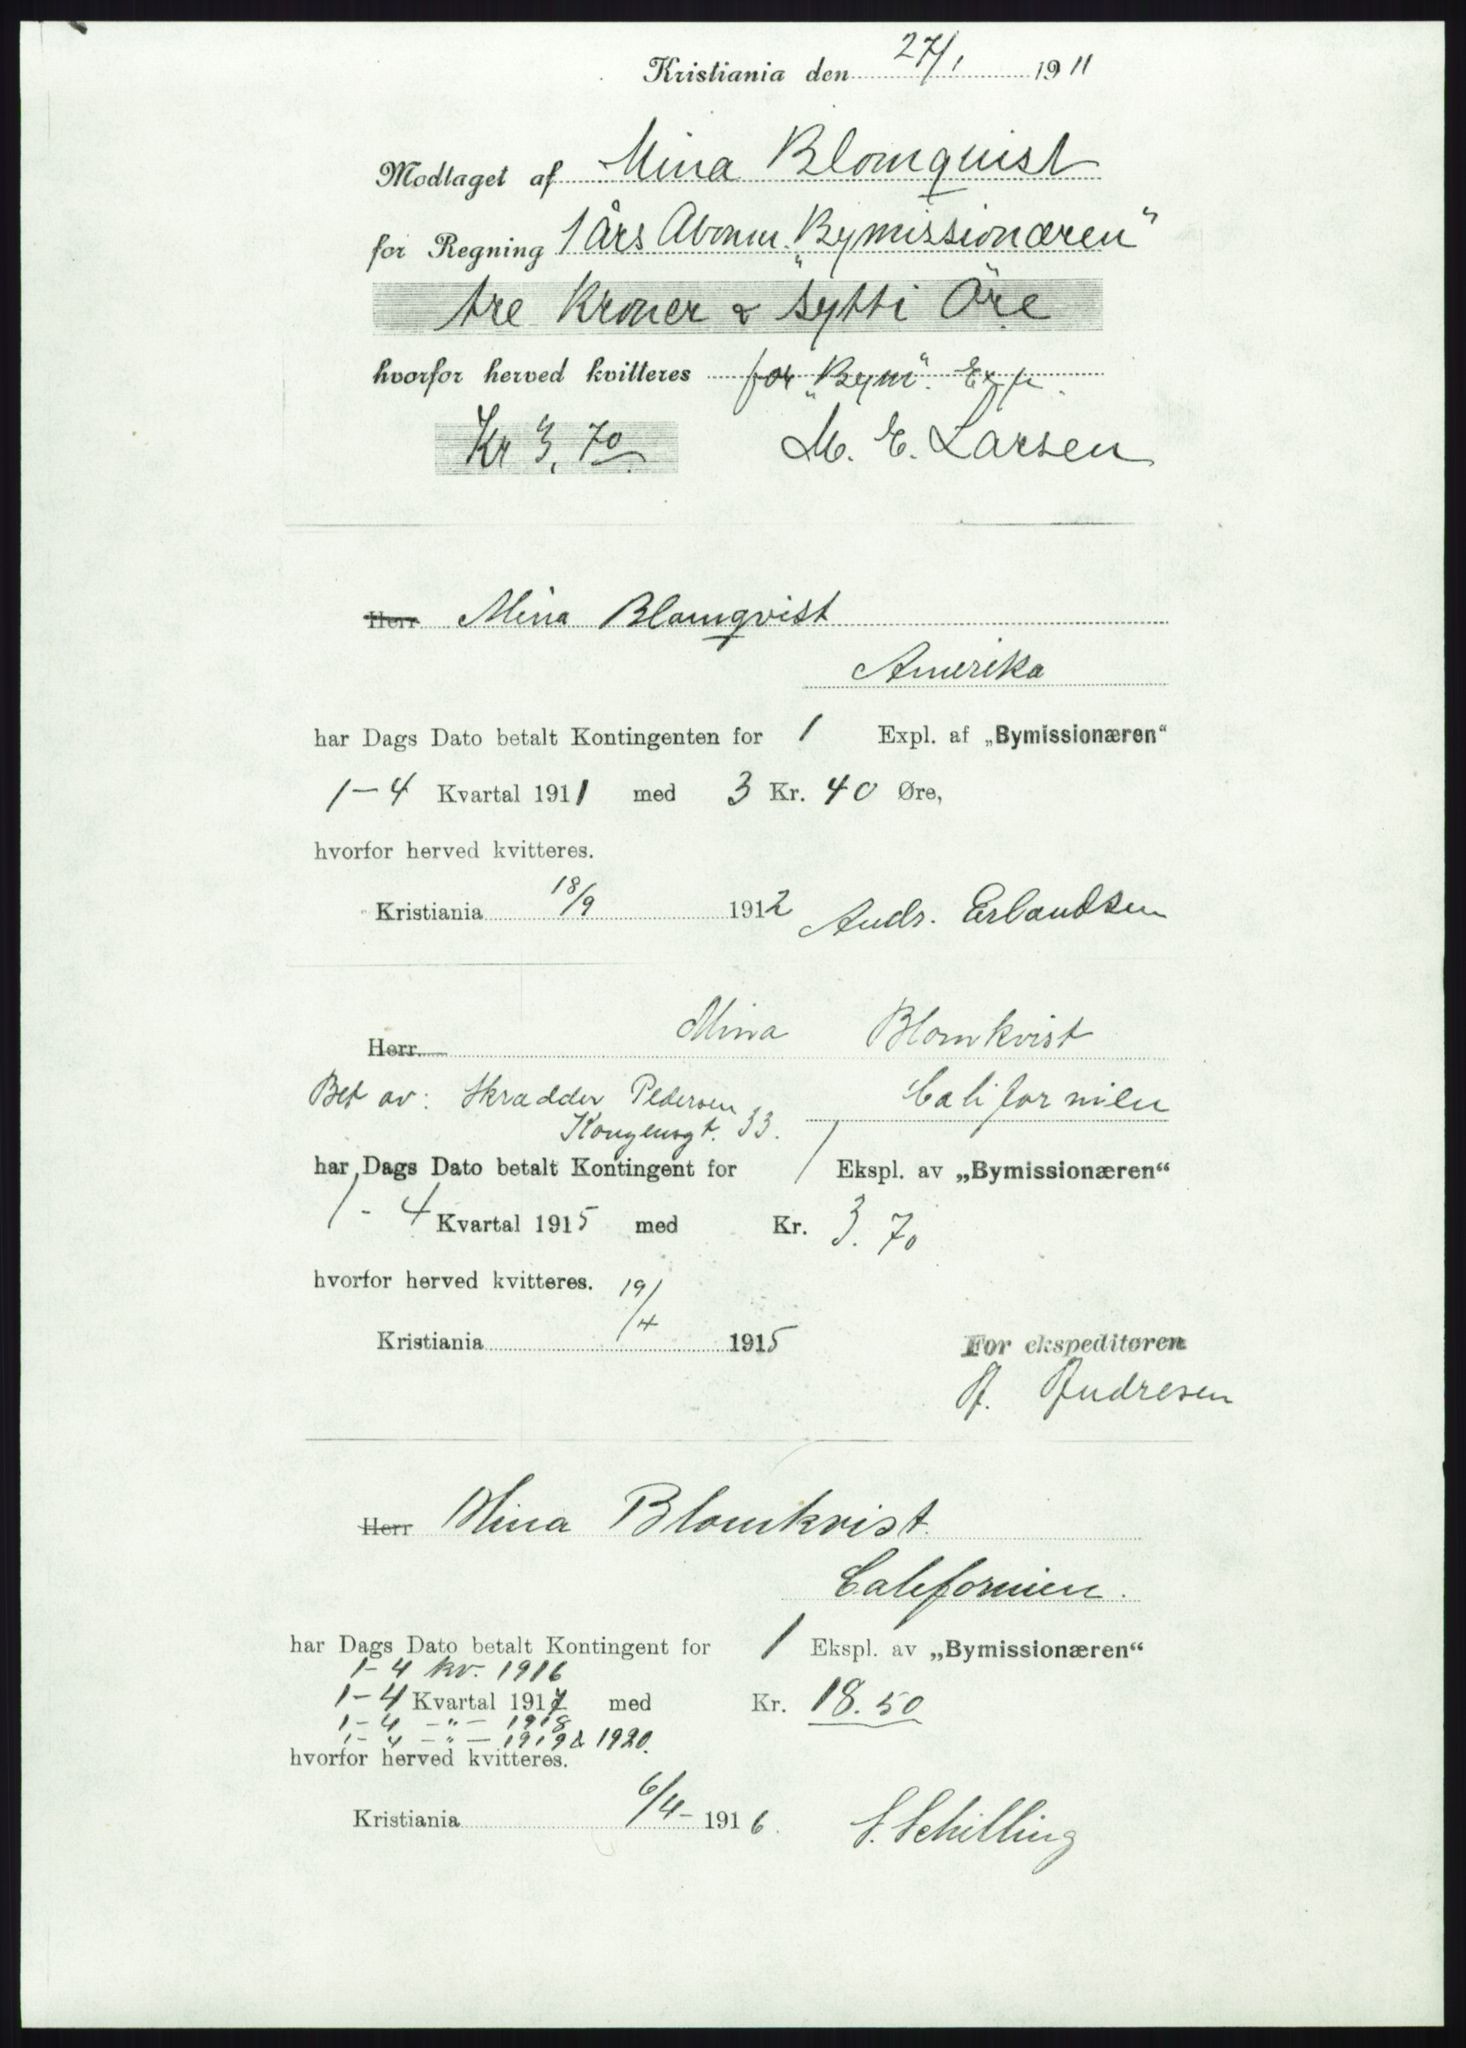 Kristiania den 27/1 1911
Modtaget af Mina Blomquist
for Regning 1 Års Abonm. „Bymissionæren“
tre Kroner & sytti Öre
hvorfor herved kvitteres for „Bym“. Exp.
Kr 3,70 M. E. Larsen
Herr Mina Blomqvist
Amerika
har Dags Dato betalt Kontingenten for 1 Expl. af „Bymissionæren“
1-4 Kvartal 1911 med 3 Kr. 40 Øre,
hvorfor herved kvitteres.
Kristiania 18/9 1912 Andr. Erlandsen
Herr Mina Blomkvist
Bet av: Skrædder Pedersen Californien
Kongensgt. 33.
har Dags Dato betalt Kontingent for 1 Ekspl. av „Bymissionæren“
1-4 Kvartal 1915 med Kr. 3.70
hvorfor herved kvitteres.
Kristiania 19/4 1915
For ekspeditøren
A. Andresen
Herr Mina Blomkvist.
Californien.
har Dags Dato betalt Kontingent for 1 Ekspl. av „Bymissionæren“
1-4 kv. 1916
1-4 Kvartal 1917 med Kr. 18.50
1-4 -"- 1918
1-4 -"- 1919 & 1920.
hvorfor herved kvitteres.
Kristiania 6/4- 1916. S. Schilling